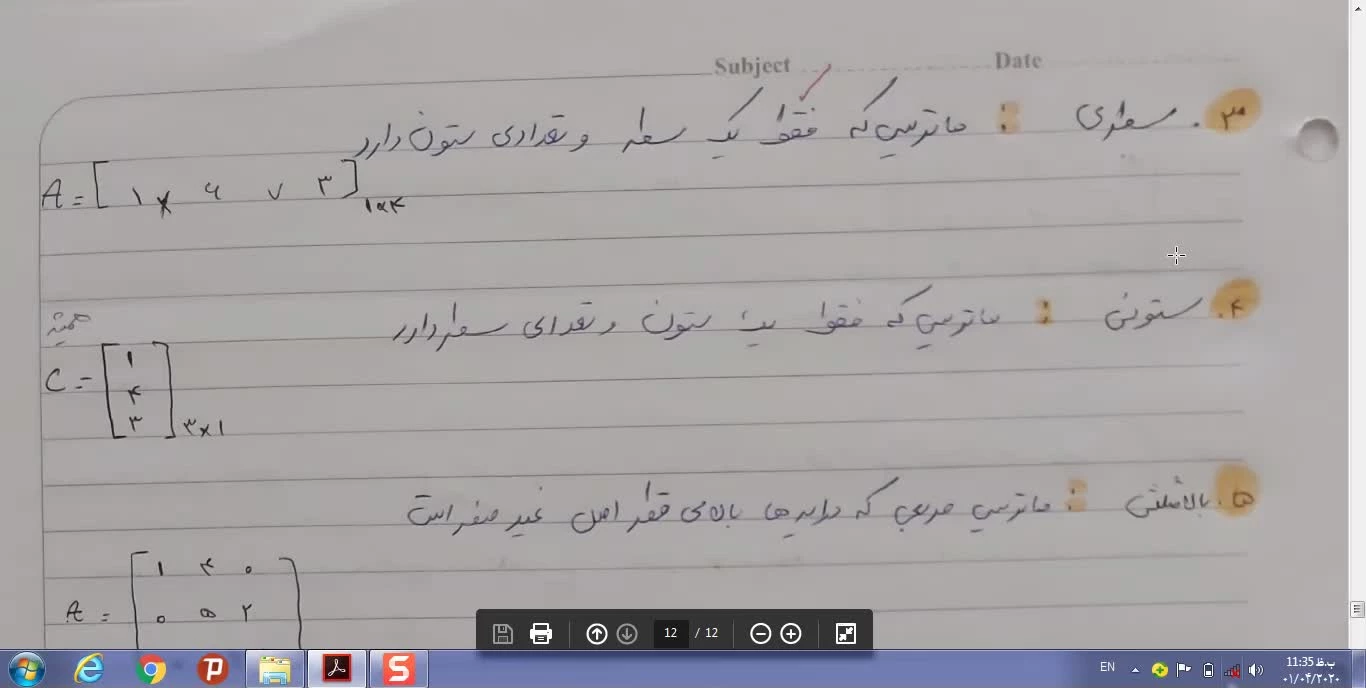 Subject Date
۳. سطری : ماتریسی که فقط یک سطر و تعدادی ستون دارد
A = [ ۱ ۶ ۷ ۳ ] ۱×۴
۴. ستونی : ماتریسی که فقط یک ستون و تعدادی سطر دارد
C = [ ۱
۴
۳ ] ۳×۱
۵. بالا مثلثی : ماتریسی مربعی که درایه ها بالای قطر اصلی غیر صفر است
۱ ۴ ۰
A = ۰ ۵ ۲
12 / 12
EN
11:35 ب.ظ
۰۱/۰۴/۲۰۲۰